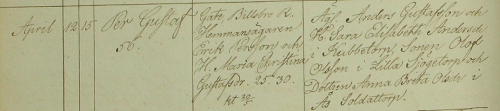 April 12 15 Per Gustaf
56.
Gate, Billsbro R.
Hemmansägaren
Erik Persson och
H. Maria Christina
Gustafsdr. 25. 30.
kt 30/4
Äg. Anders Gustafsson och
H. Sara Elisabeth Andersdr
i Hubbetorp, Sonen Olof
Olsson i Lilla Sjögetorp och
Dottren Anna Brita Olsdr i
Soldattorp.